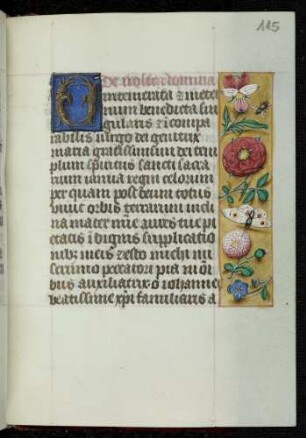 115
De nostra domina
O intemerata et in eter
num benedicta sin
gularis et incompa
rabilis virgo dei genitrix
maria gratissimum dei tem
plum spiritus sancti sacra
rium ianua regni celorum
per quam post deum totus
viuit orbis terrarum incli
na mater mie aures tue pi
etatis indignis supplicatio
nibus meis et esto michi mi
serrimo peccatori pia in om
bus auxiliatrix o iohannes
beatissime xpi familiaris a